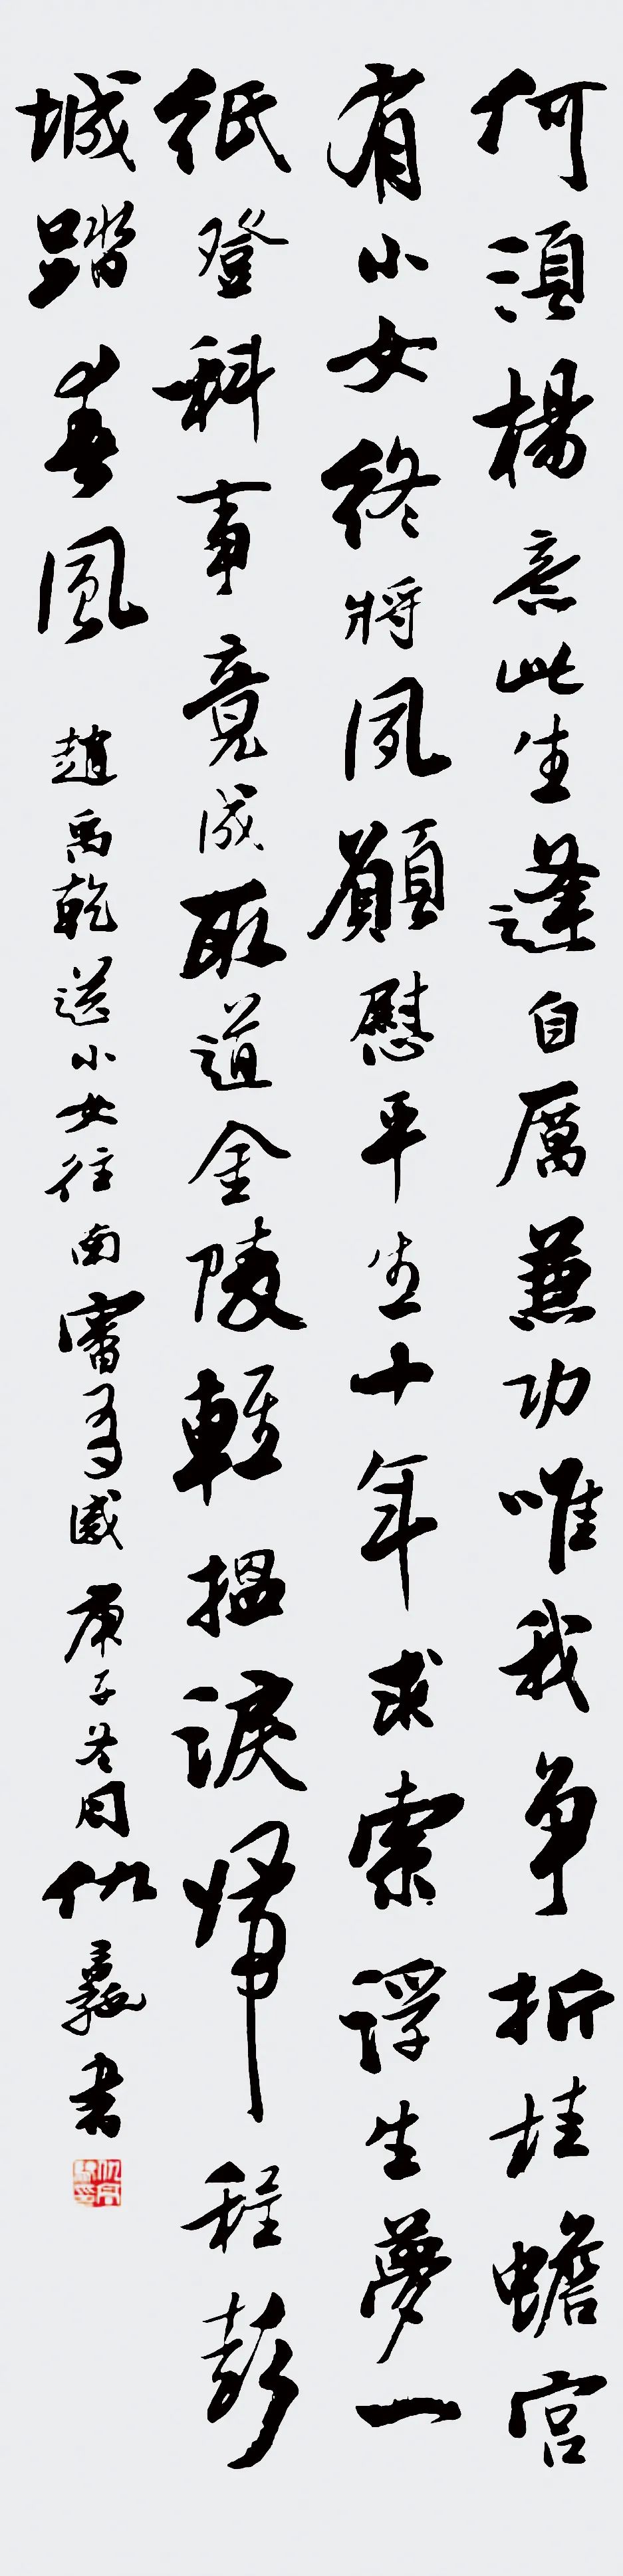 何須楊意此生逢自厲兼功唯我争折桂蟾宫
有小女終將夙願慰平生十年求索浮生夢一
紙登科事竟成取道金陵輕搵淚歸程彭
城踏春風 趙禹乾送小女往南審有感 庚子冬月仇書